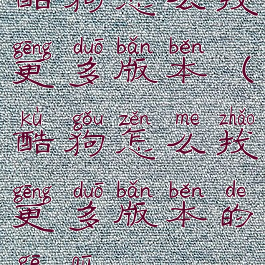 gēng duō bǎn běn
更多版本(
kù gǒu zěn me zhǎo
酷狗怎么找
gēng duō bǎn běn de
更多版本的